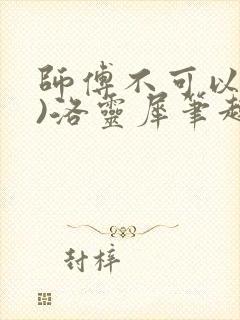 師傅不可以
)洛靈犀筆趣
封梓